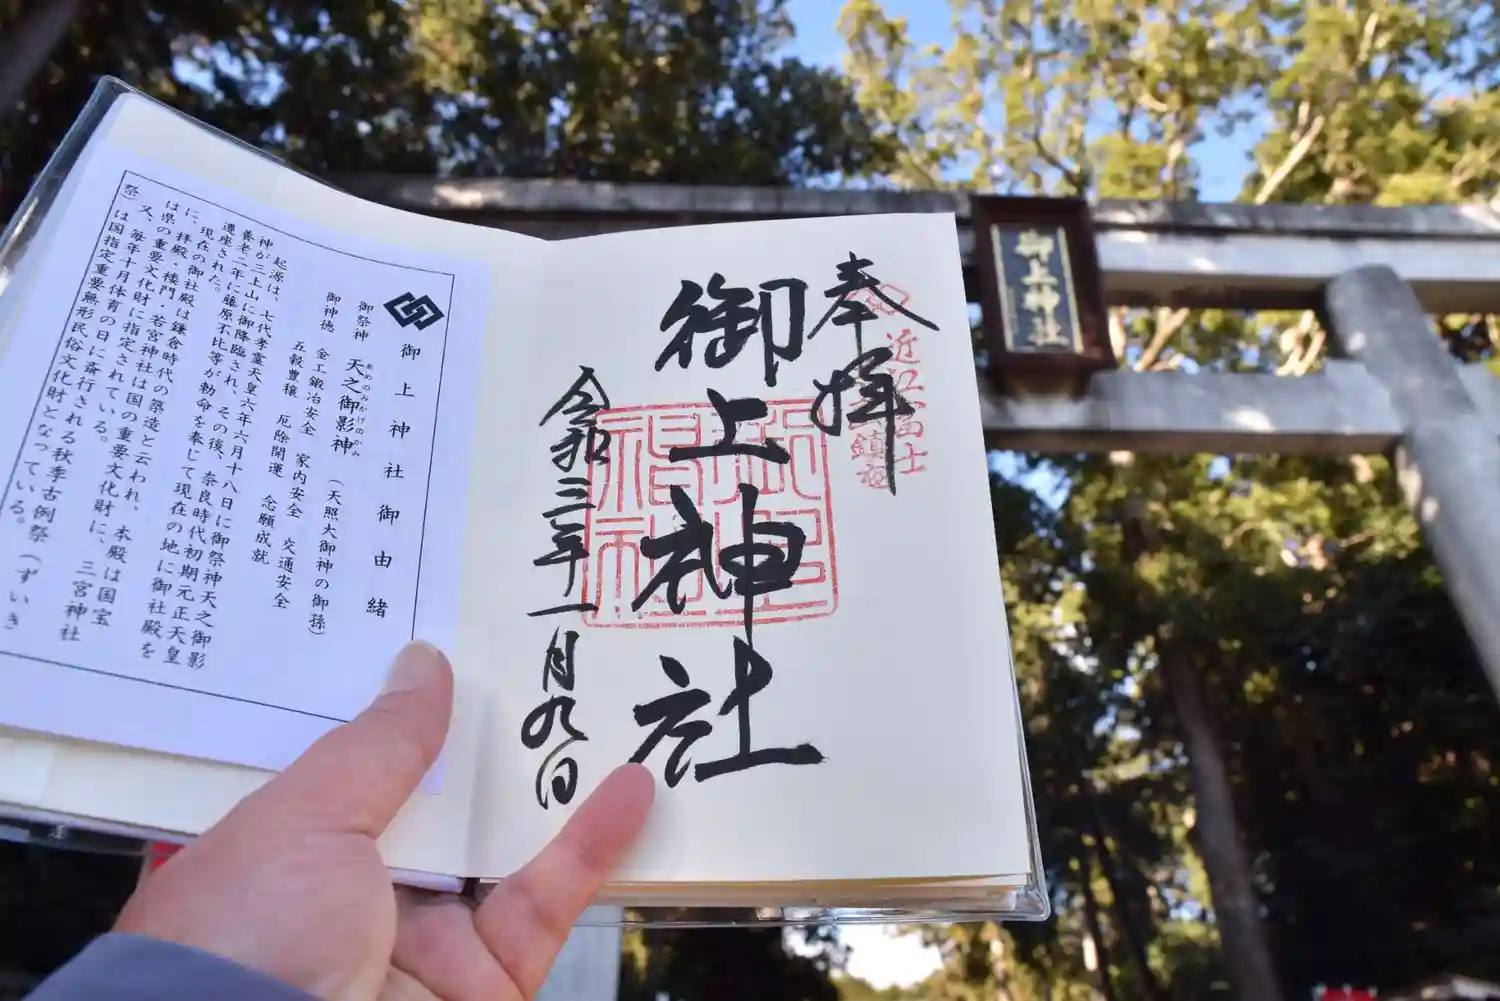 奉拝
御上神社
令和三年十一月九日
近江富士
鎮座
御上神社
御上神社御由緒
御祭神 天之御影神(天照大御神の御孫)
あめのみかげのかみ
御神徳 金工鍛冶安全 家内安全 交通安全
五穀豊穣 厄除開運 念願成就
起源は、七代孝霊天皇六年六月十八日に御祭神天之御影
神が三上山に御降臨され、その後、奈良時代初期元正天皇
養老二年に藤原不比等が勅命を奉じて現在の地に御社殿を
遷座された。
現在の御社殿は鎌倉時代の築造と云われ、本殿は国宝
に、拝殿・楼門・若宮神社は国の重要文化財に、三宮神社
は県の重要文化財に指定されている。
又、毎年十月体育の日に斎行される秋季古例祭(ずいき
祭)は国指定重要無形民俗文化財となっている。